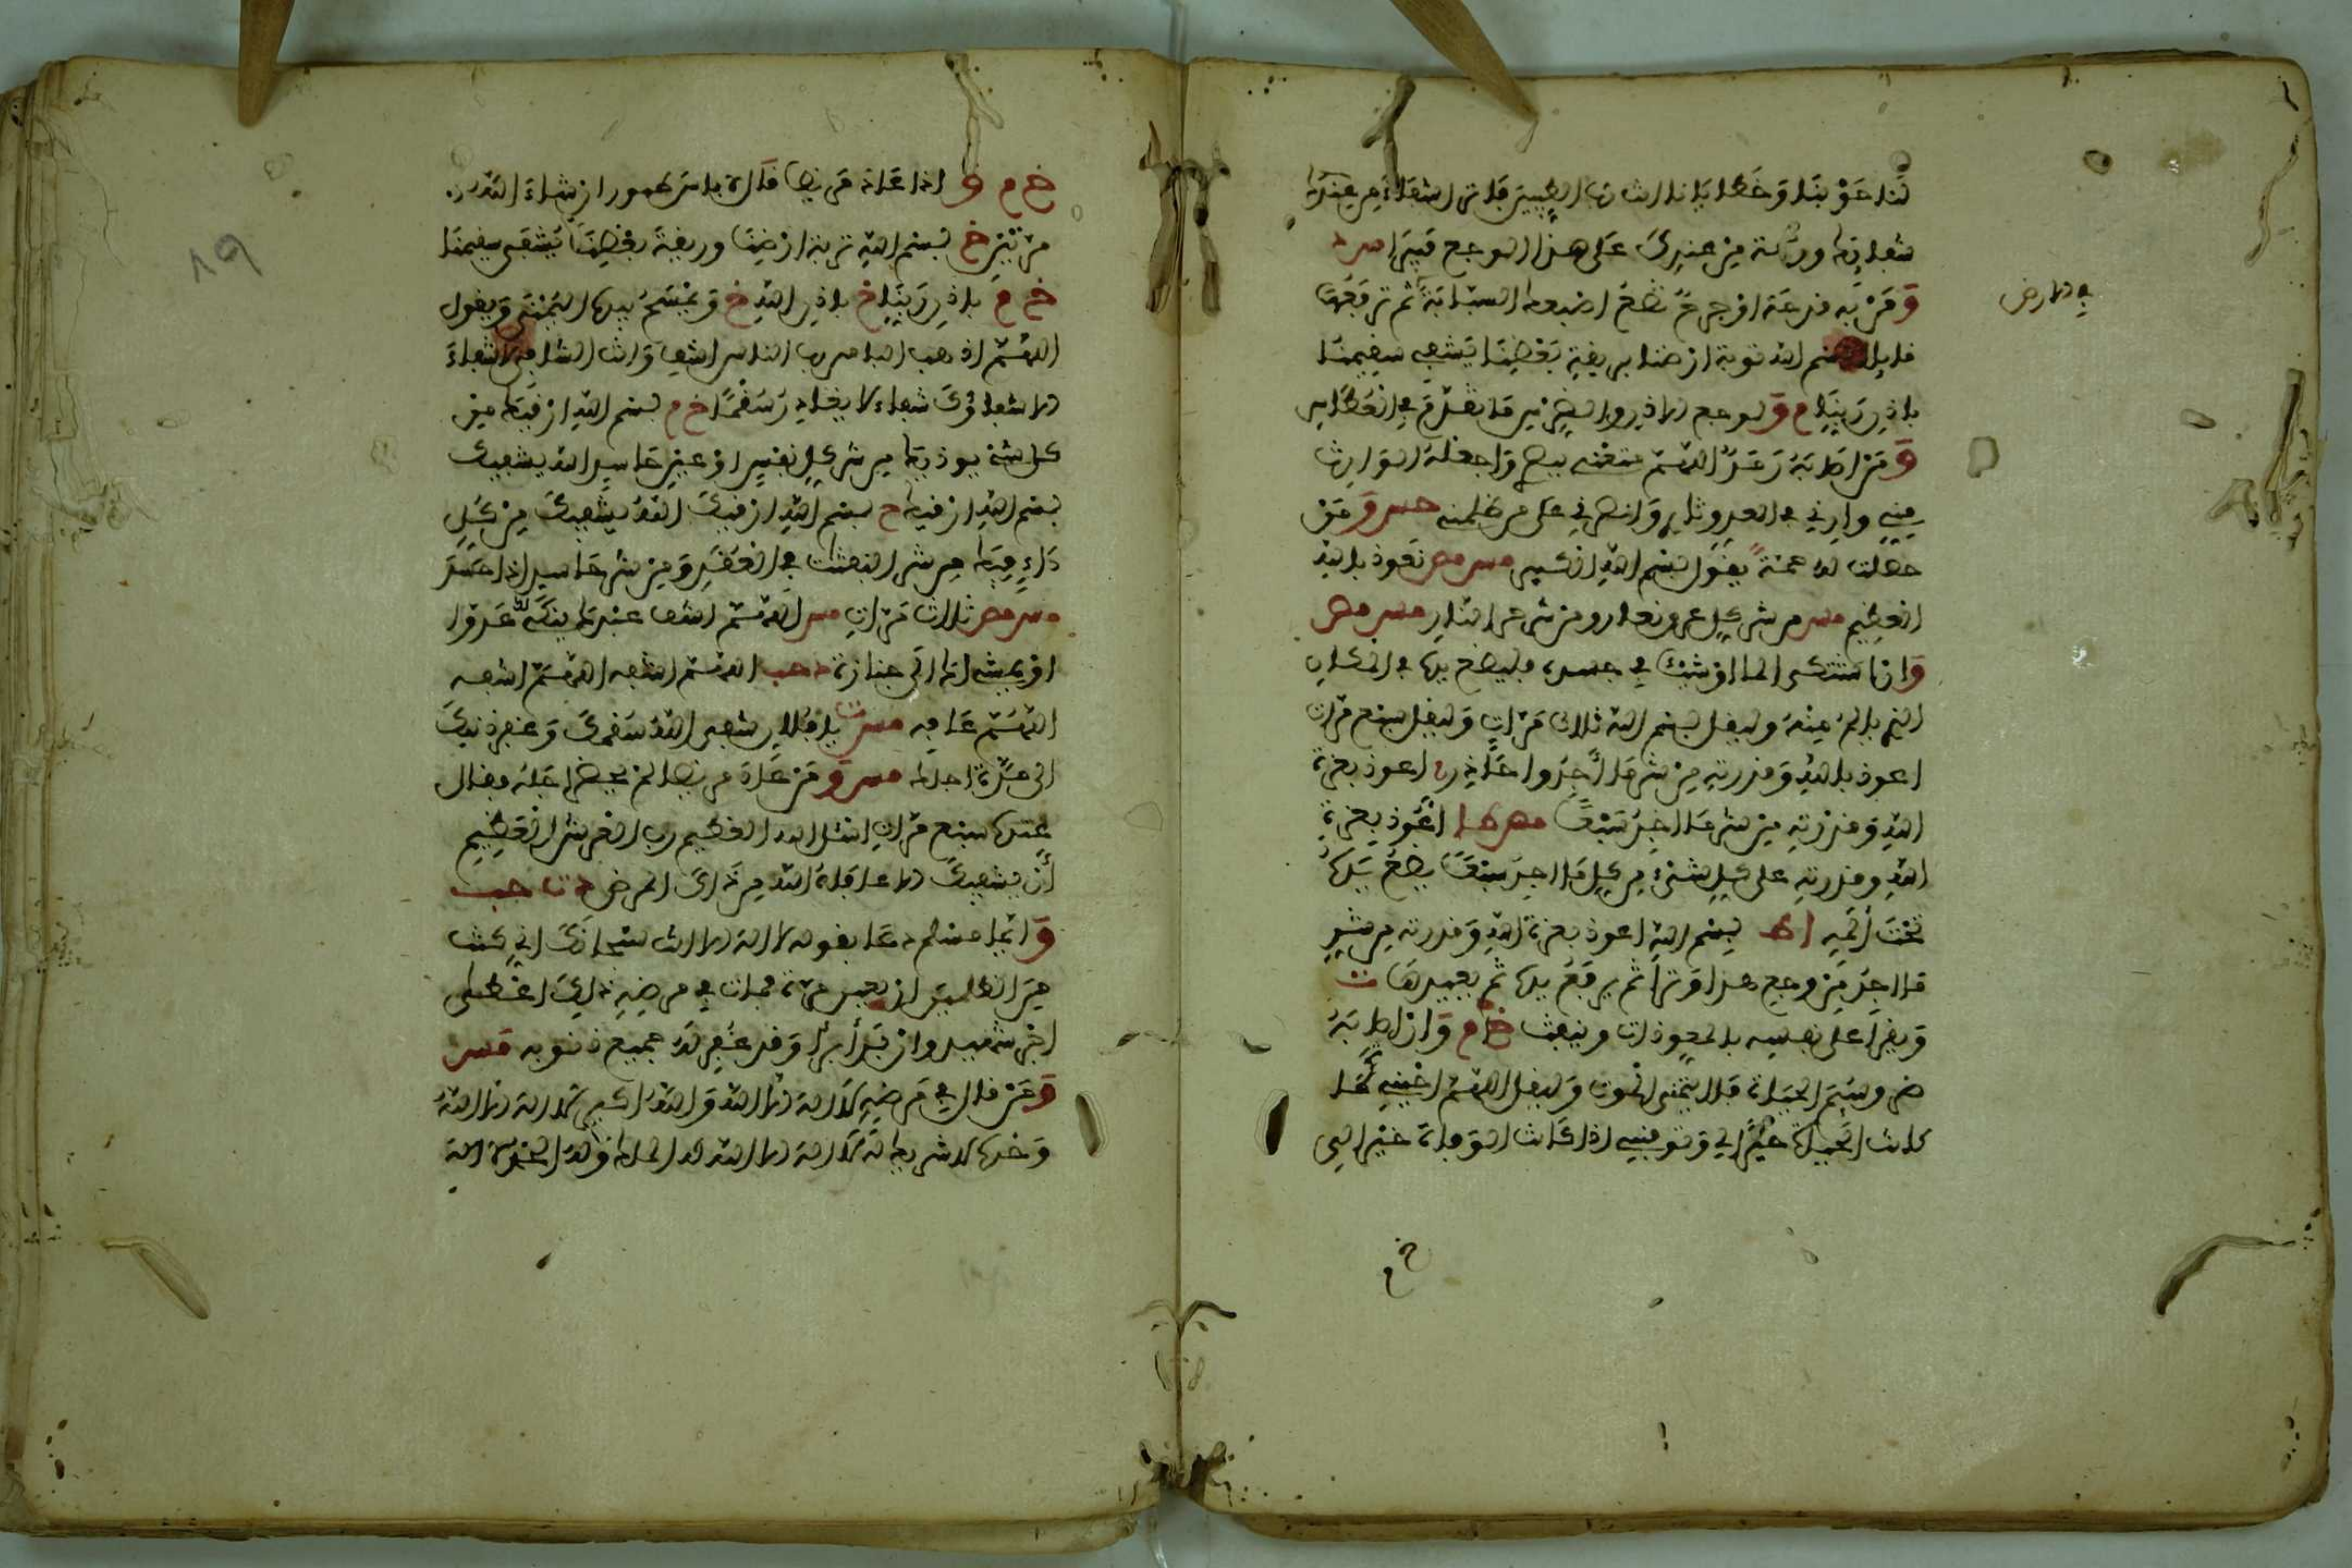 لنا حوبنا وخطايانا انت رب الطيبين فانزل شفاء من عندك
شفائك ورحمة من عندك على هذا الوجع فيبرا س د
ومن به قرحة او جرح تضع اصبعه السبابة ثم ترفعها
قايلا بسم الله تربة ارضنا بريقة بعضنا يشفى سقيمنا
باذن ربنا م ولوجع الاذن والضرس ما تقدم في العطاس
ومن اصابه رمد اللهم متعني ببصري واجعله الوارث
مني وارني في العدو ثاري وانصرني على من ظلمني مس ومن
حصلت له حمى يقول بسم الله الكبير مس مص نعوذ بالله
العظيم مس من شر كل عرق نعار ومن شر حر النار مس مص
وان اشتكى الما او شيئا في جسده فليضع يده في المكان
الذي يالم منه وليقل بسم الله ثلاث مرات وليقل سبع مرات
اعوذ بالله وقدرته من شر ما اجد واحاذر اعوذ بعزة
الله وقدرته من شر ما اجد سبعا مص اعوذ بعزة
الله وقدرته على كل شيء من كل ما اجد سبعا يضع يده
تحت المه ا ط بسم الله اعوذ بعزة الله وقدرته من شر
ما اجد من وجعي هذا وترا ثم يرفع يده ثم يعيدها ت
ويقرا على نفسه بالمعوذات وينفث خ م وان اصابه
ضر وسئم الحياة فلا يتمنى الموت وليقل اللهم احيني ما
كانت الحياة خيرا لي وتوفني اذا كانت الوفاة خيرا لي
خ م
خ م و اذا عاد مريضا قال لا باس طهور ان شاء الله
مرتين خ بسم الله تربة ارضنا وريقة بعضنا يشفى سقيمنا
خ م باذن ربنا خ باذن الله خ ويمسح بيده اليمنى ويقول
اللهم اذهب الباس رب الناس اشف وانت الشافي لا شفاء
الا شفاؤك شفاء لا يغادر سقما خ م بسم الله ارقيك من
كل شيء يوذيك من شر كل نفس او عين حاسد الله يشفيك
بسم الله ارقيك م بسم الله ارقيك الله يشفيك من كل
داء فيك من شر النفثت في العقد ومن شر حاسد اذا حسد
مس مص ثلاث مرات مس اللهم اشف عبدك ينكا لك عدوا
او يمشي لك الى جنازة د حب اللهم اشفه اللهم اشفه
اللهم عافه مس ت يا فلان شفى الله سقمك وغفر ذنبك
الى مدة اجلك مس ومن عاد مريضا لم يحضر اجله فقال
عنده سبع مرات اسئل الله العظيم رب العرش العظيم
ان يشفيك الا عافاه الله من ذلك المرض د ت حب
وايما مسلم دعا بقوله لا اله الا انت سبحانك اني كنت
من الظلمين اربعين مرة فمات في مرضه ذلك اعطي
اجر شهيد وان برا برا وقد غفر له جميع ذنوبه مس
ومن قال في مرضه لا اله الا الله والله اكبر لا اله الا الله
وحده لا شريك له لا اله الا الله له الملك وله الحمد لا اله